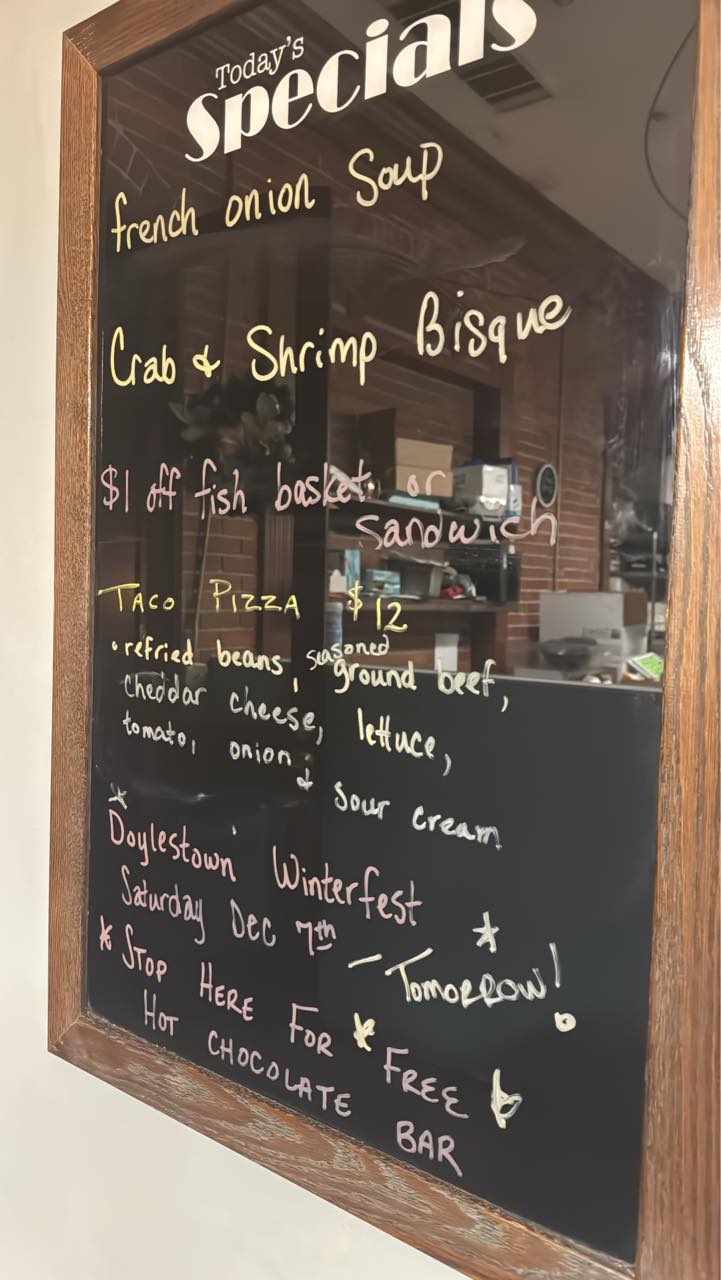 Today's
Specials
french onion Soup
Crab & Shrimp Bisque
$1 off fish basket or
sandwich
TACO PIZZA $12
• refried beans, seasoned ground beef,
cheddar cheese, lettuce,
tomato, onion
& sour cream
* Doylestown Winterfest
Saturday Dec 7th *
— TOMORROW!
* STOP HERE FOR * FREE
HOT CHOCOLATE BAR